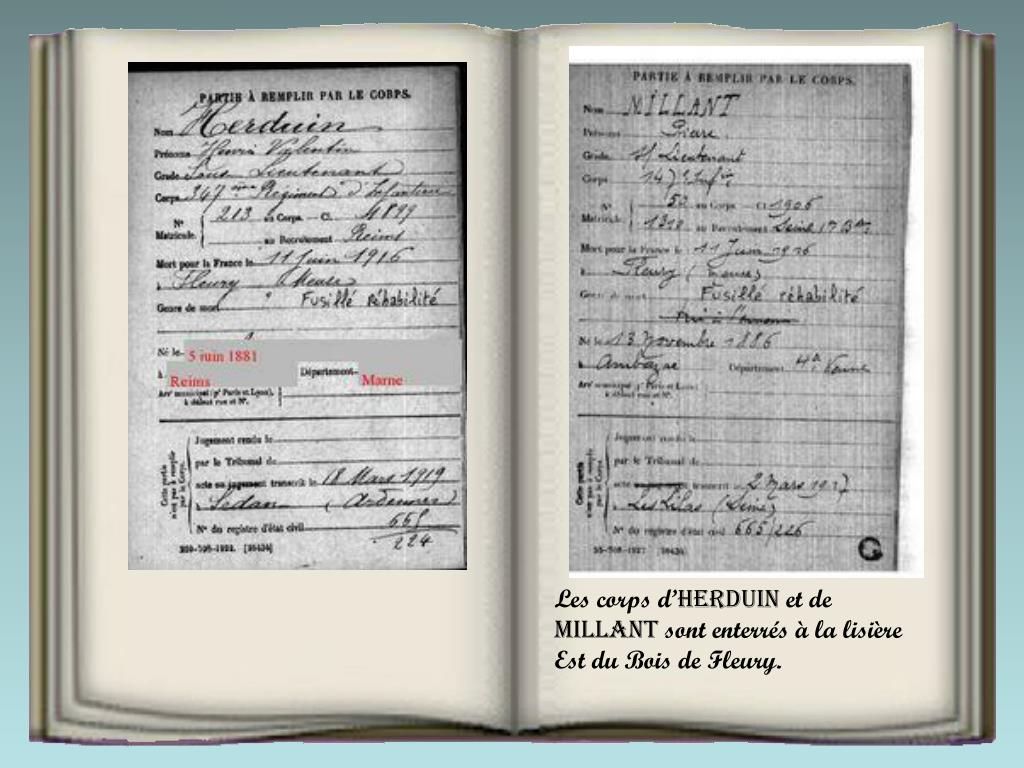 PARTIE À REMPLIR PAR LE CORPS.
Nom Herduin
Prénoms Henri Valentin
Grade Sous Lieutenant
Corps 347 ème Régiment d'Infanterie
N° 213 au Corps. — Cl. 1899
Matricule. au Recrutement Reims
Mort pour la France le 11 juin 1916
à Fleury Meuse
Genre de mort Fusillé réhabilité
Né le 5 juin 1881
à Reims Département Marne
Arr' municipal (p' Paris et Lyon),
à défaut rue et N°.
Cette partie
n'est pas à remplir
par le Corps.
Jugement rendu le
par le Tribunal de
acte ou jugement transcrit le 18 Mars 1919
à Sedan (Ardennes)
N° du registre d'état civil
665
224
PARTIE À REMPLIR PAR LE CORPS.
Nom MILLANT
Prénoms
Grade S/ Lieutenant
Corps 147
N° 50 au Corps. — Cl. 1906
Matricule. au Recrutement Seine
Mort pour la France le 11 Juin 1916
à Fleury (Meuse)
Genre de mort Fusillé réhabilité
Né le 13 Novembre 1886
à Département
Arr' municipal (p' Paris et Lyon),
à défaut rue et N°.
Cette partie
n'est pas à remplir
par le Corps.
Jugement rendu le
par le Tribunal de
acte ou jugement transcrit le 2 Mars 1917
à Les Lilas (Seine)
N° du registre d'état civil 665/226
G
Les corps d'HERDUIN et de
MILLANT sont enterrés à la lisière
Est du Bois de Fleury.